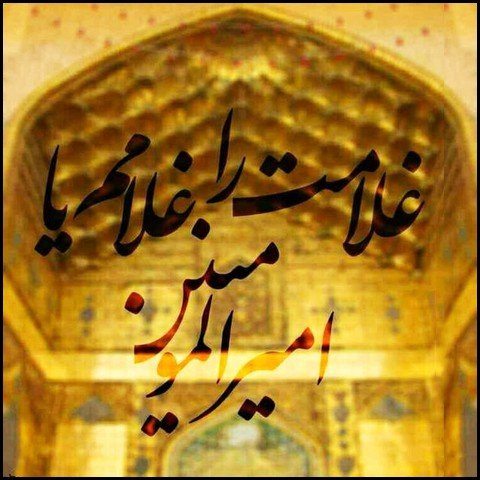 غلامت را غلامم یا
امیرالمومنین